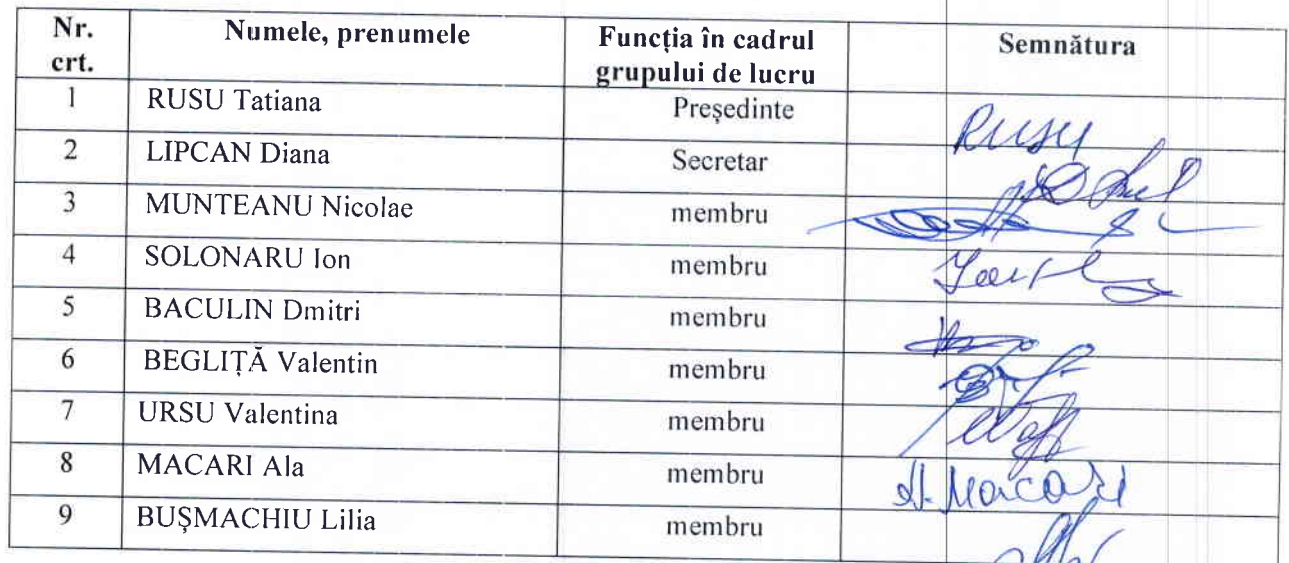 Nr. crt. Numele, prenumele Funcția în cadrul grupului de lucru Semnătura
1 RUSU Tatiana Președinte Rusu
2 LIPCAN Diana Secretar
3 MUNTEANU Nicolae membru
4 SOLONARU Ion membru
5 BACULIN Dmitri membru
6 BEGLIȚĂ Valentin membru
7 URSU Valentina membru
8 MACARI Ala membru A. Macari
9 BUȘMACHIU Lilia membru